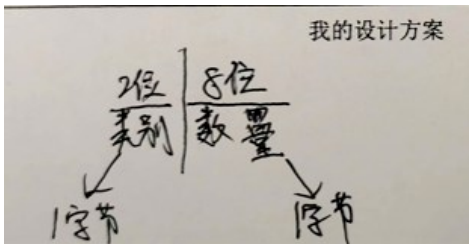 我的设计方案
2位 8位
类别 数量
1字节 1字节